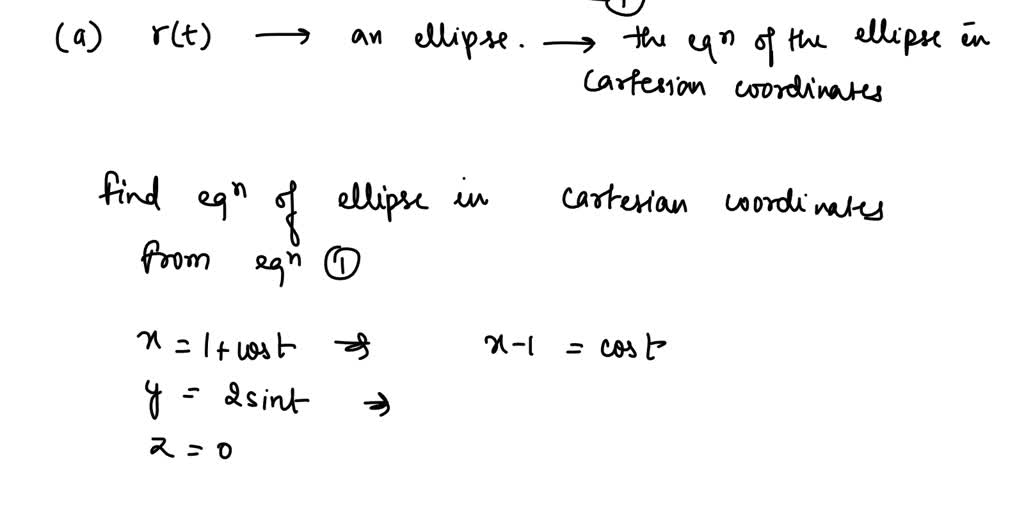 ①
(a) r(t) → an ellipse. → the eqⁿ of the ellipse in
Cartesian coordinates
find eqⁿ of ellipse in cartesian coordinates
from eqⁿ ①
x = 1 + cos t → x-1 = cos t
y = 2 sin t →
z = 0